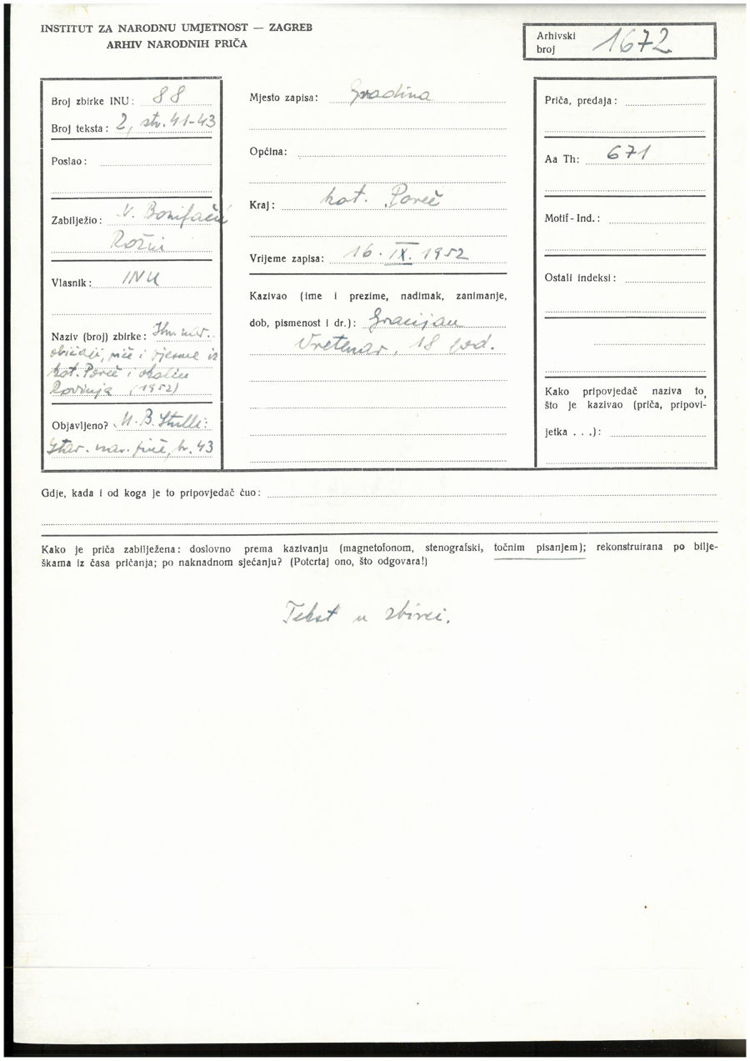 INSTITUT ZA NARODNU UMJETNOST — ZAGREB
ARHIV NARODNIH PRIČA
Arhivski broj 1672
Broj zbirke INU: 88
Broj teksta: 2, str. 41-43
Poslao:
Zabilježio: N. Bonifačić
Rožin
Vlasnik: INU
Naziv (broj) zbirke: nar.
običaji, priče i pjesme iz
kot. Poreč i okolice
Rovinja (1952)
Objavljeno? M. B. Stulli:
Istar. nar. priče, br. 43
Mjesto zapisa: Gradina
Općina:
Kraj: kot. Poreč
Vrijeme zapisa: 16. IX. 1952
Kazivao (ime i prezime, nadimak, zanimanje,
dob, pismenost i dr.): Gracijan
Vretenar, 18 god.
Priča, predaja:
Aa Th: 671
Motif-Ind.:
Ostali indeksi:
Kako pripovjedač naziva to,
što je kazivao (priča, pripovi-
jetka . . .):
Gdje, kada i od koga je to pripovjedač čuo:
Kako je priča zabilježena: doslovno prema kazivanju (magnetofonom, stenografski, točnim pisanjem); rekonstruirana po bilje-
škama iz časa pričanja; po naknadnom sjećanju? (Potcrtaj ono, što odgovara!)
Tekst u zbirci.